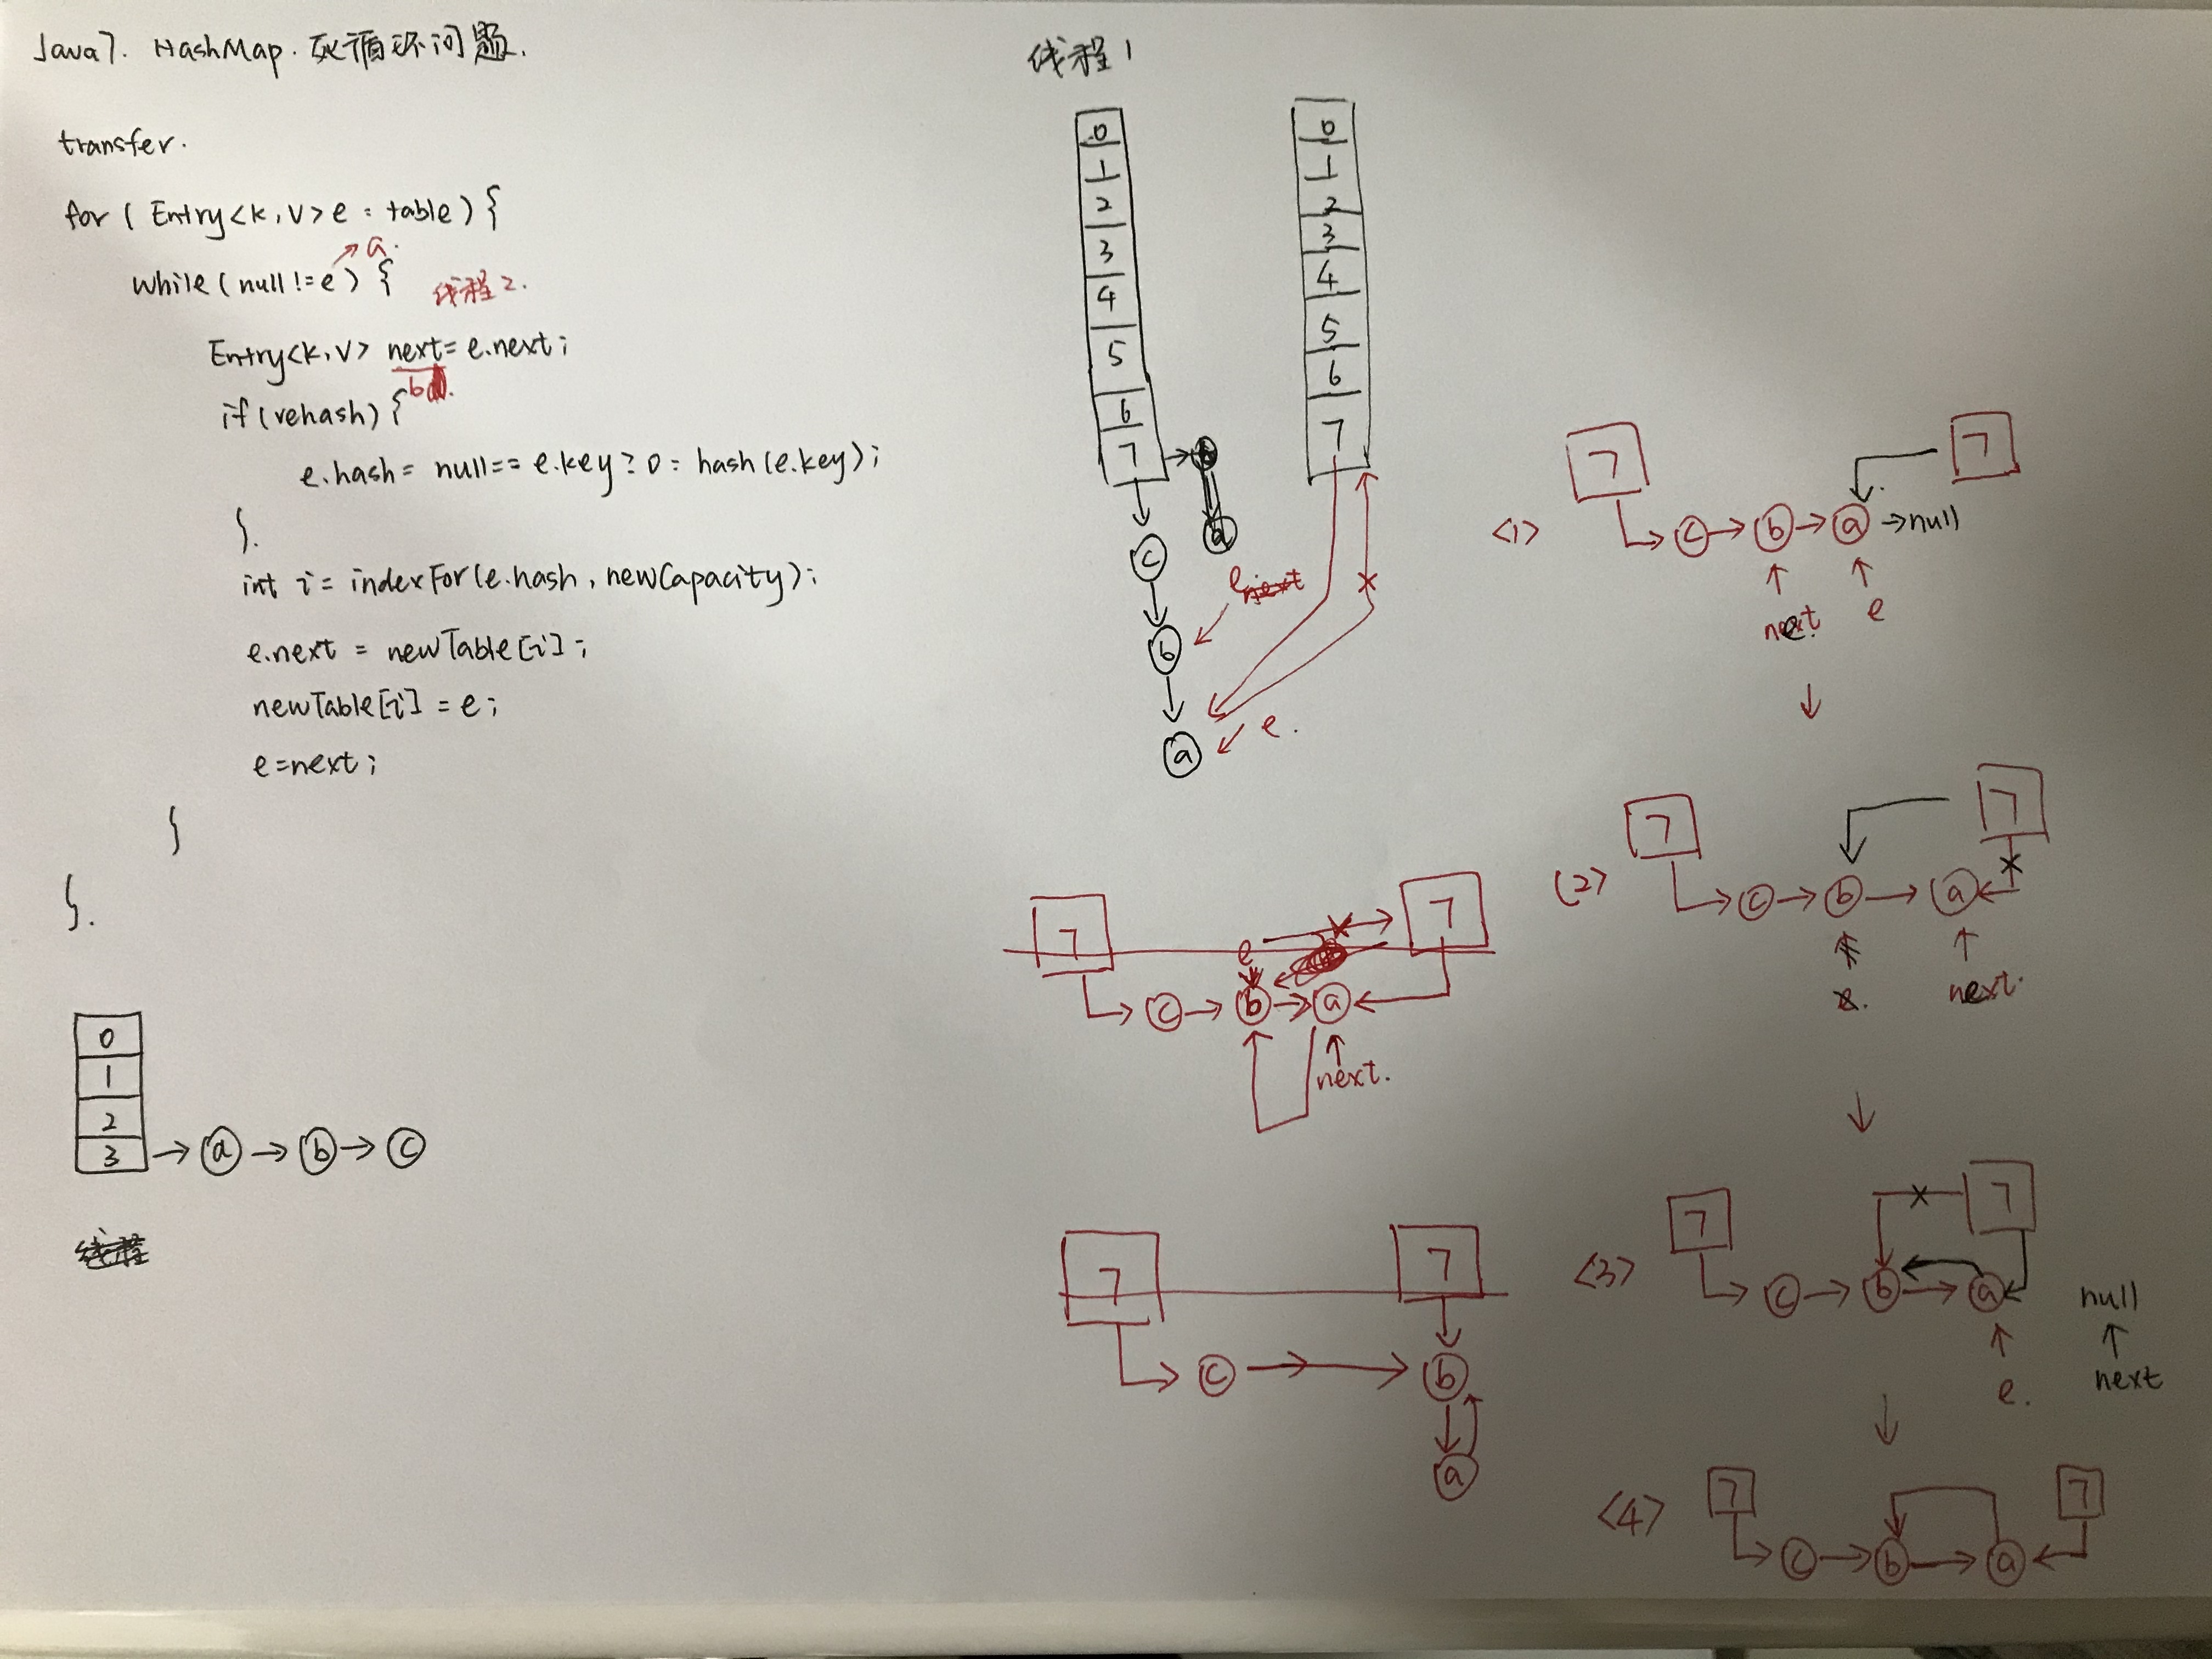 Java7. HashMap. 死循环问题.
transfer.
for ( Entry<K,V> e : table ) {
a.
while ( null != e ) {
线程2.
Entry<K,V> next = e.next;
b
if (rehash) {
e.hash = null == e.key ? 0 : hash(e.key);
}.
int i = indexFor(e.hash, newCapacity);
e.next = newTable[i];
newTable[i] = e;
e=next;
}
}.
0
1
2
3 → a → b → c
线程
线程1
0
1
2
3
4
5
6
7
c
b
a
0
1
2
3
4
5
6
7
e
next
e.
7 7
e
c → b → a
next.
7 7
c → b
a
<1>
7 7
c → b → a → null
next e
e.
(2)
7 7
c → b → a
e. next.
<3>
7 7
c → b → a null
e. next
<4>
7 7
c → b → a